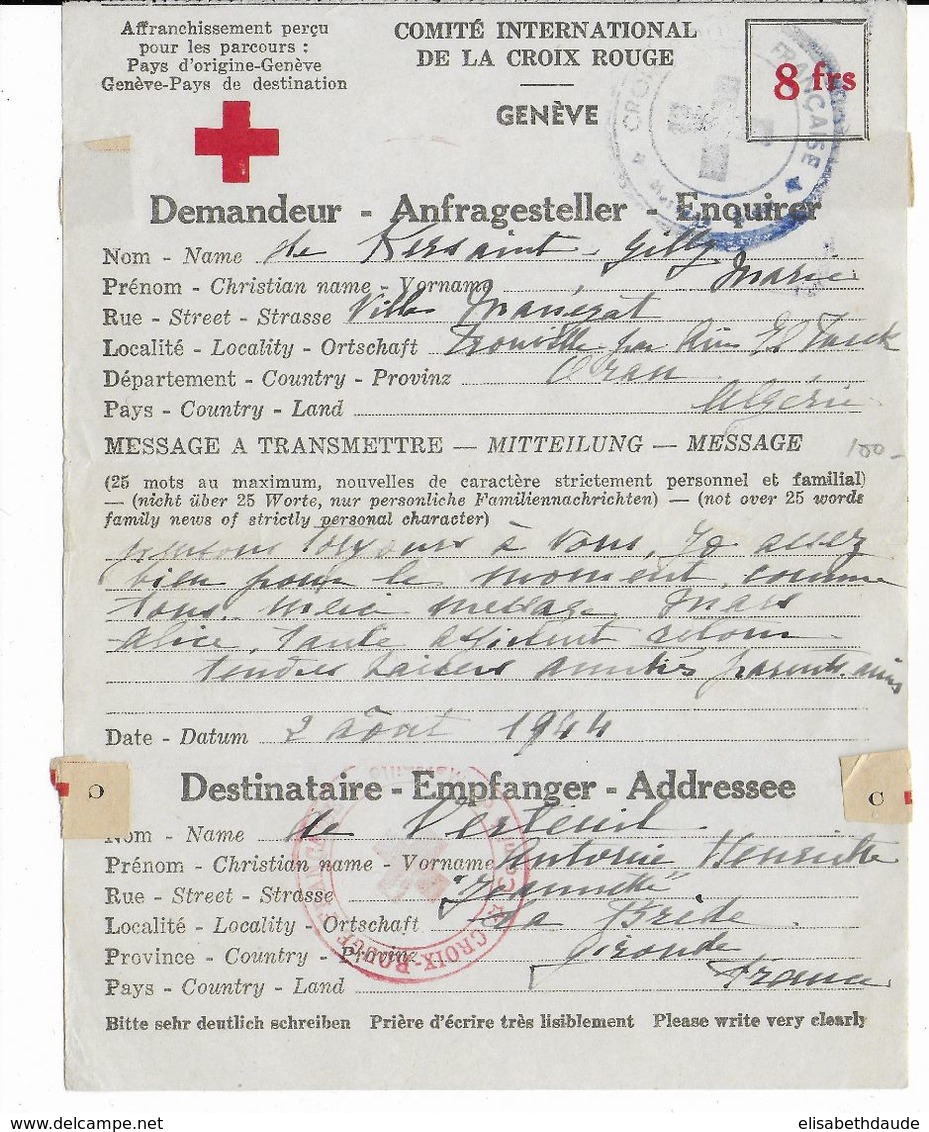 Affranchissement perçu
pour les parcours :
Pays d'origine-Genève
Genève-Pays de destination
COMITÉ INTERNATIONAL
DE LA CROIX ROUGE
GENÈVE
8 frs
FRANÇAISE
Demandeur - Anfragesteller - Enquirer
Nom - Name de Kersaint-Gilly
Prénom - Christian name - Vorname Marie
Rue - Street - Strasse Villa
Localité - Locality - Ortschaft Trouville par Ain El Turck
Département - Country - Provinz Oran
Pays - Country - Land Algérie
MESSAGE A TRANSMETTRE — MITTEILUNG — MESSAGE
100-
(25 mots au maximum, nouvelles de caractère strictement personnel et familial)
— (nicht über 25 Worte, nur personliche Familiennachrichten) — (not over 25 words
family news of strictly personal character)
pensons toujours à vous, assez
bien pour le moment, comme
tous. merci message
Alice, tante
tendres baisers amitiés parents. amis
Date - Datum 2 août 1944
Destinataire - Empfanger - Addressee
Nom - Name de Verteuil
Prénom - Christian name - Vorname Antoine Henriette
Rue - Street - Strasse "Jeannette"
Localité - Locality - Ortschaft La Brède
Province - Country - Provinz Gironde
Pays - Country - Land France
CROIX-ROUGE
Bitte sehr deutlich schreiben Prière d'écrire très lisiblement Please write very clearly
elisabethdaude